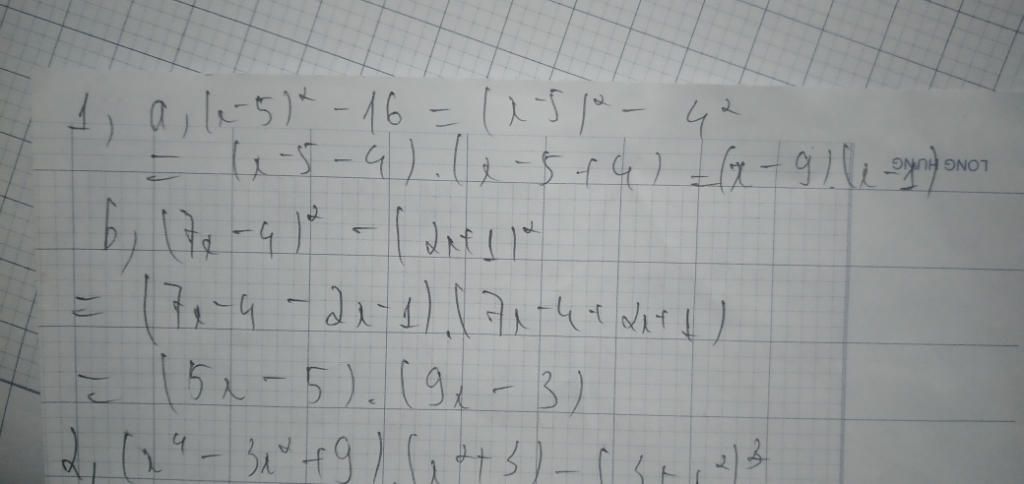 1, a, (x-5)² - 16 = (x-5)² - 4²
= (x-5-4).(x-5+4) = (x-9).(x-1)
LONG HƯNG
b, (7x-4)² - (2x+1)²
= (7x-4-2x-1).(7x-4+2x+1)
= (5x-5).(9x-3)
2, (x⁴ - 3x² + 9).(x²+3) - (3+x²)³